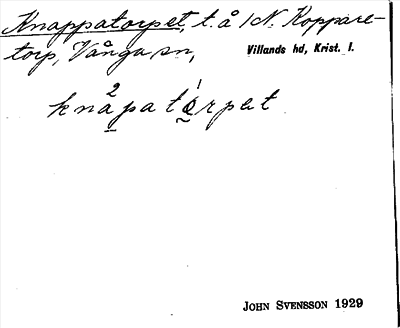 Knappatorpet, t. å 1 N. Koppare-
torp, Vånga sn, Villands hd, Krist. l.
knåpatórpet
JOHN SVENSSON 1929